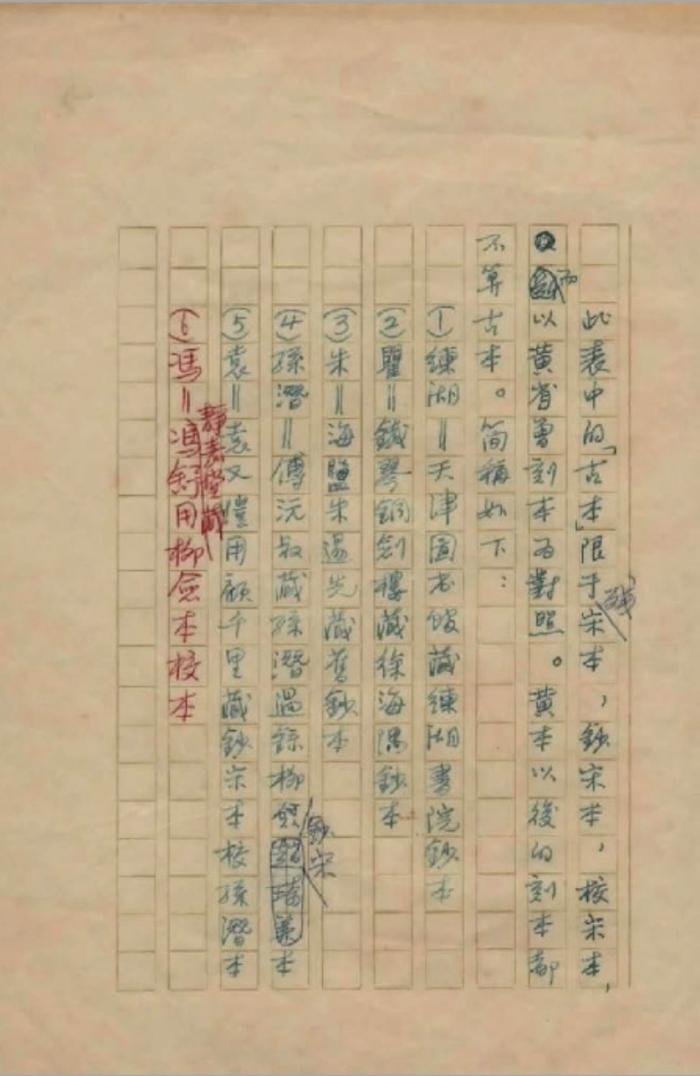 此表中的「古本」限于宋本,鈔宋本,校宋本,
而以黃省曾刻本為對照。黃本以後的刻本都
不算古本。简稱如下:
(1)練湖=天津圖书館藏練湖書院鈔本
(2)瞿=鐵琴銅劍樓藏徐海隅鈔本
(3)朱=海鹽朱逷先藏舊鈔本
(4)孫潛=傅沅叔藏孫潛過錄柳僉鈔宋本
(5)袁=袁又愷用顧千里藏鈔宋本校孫潛本
(6)馮=靜嘉堂藏馮舒用柳僉本校本